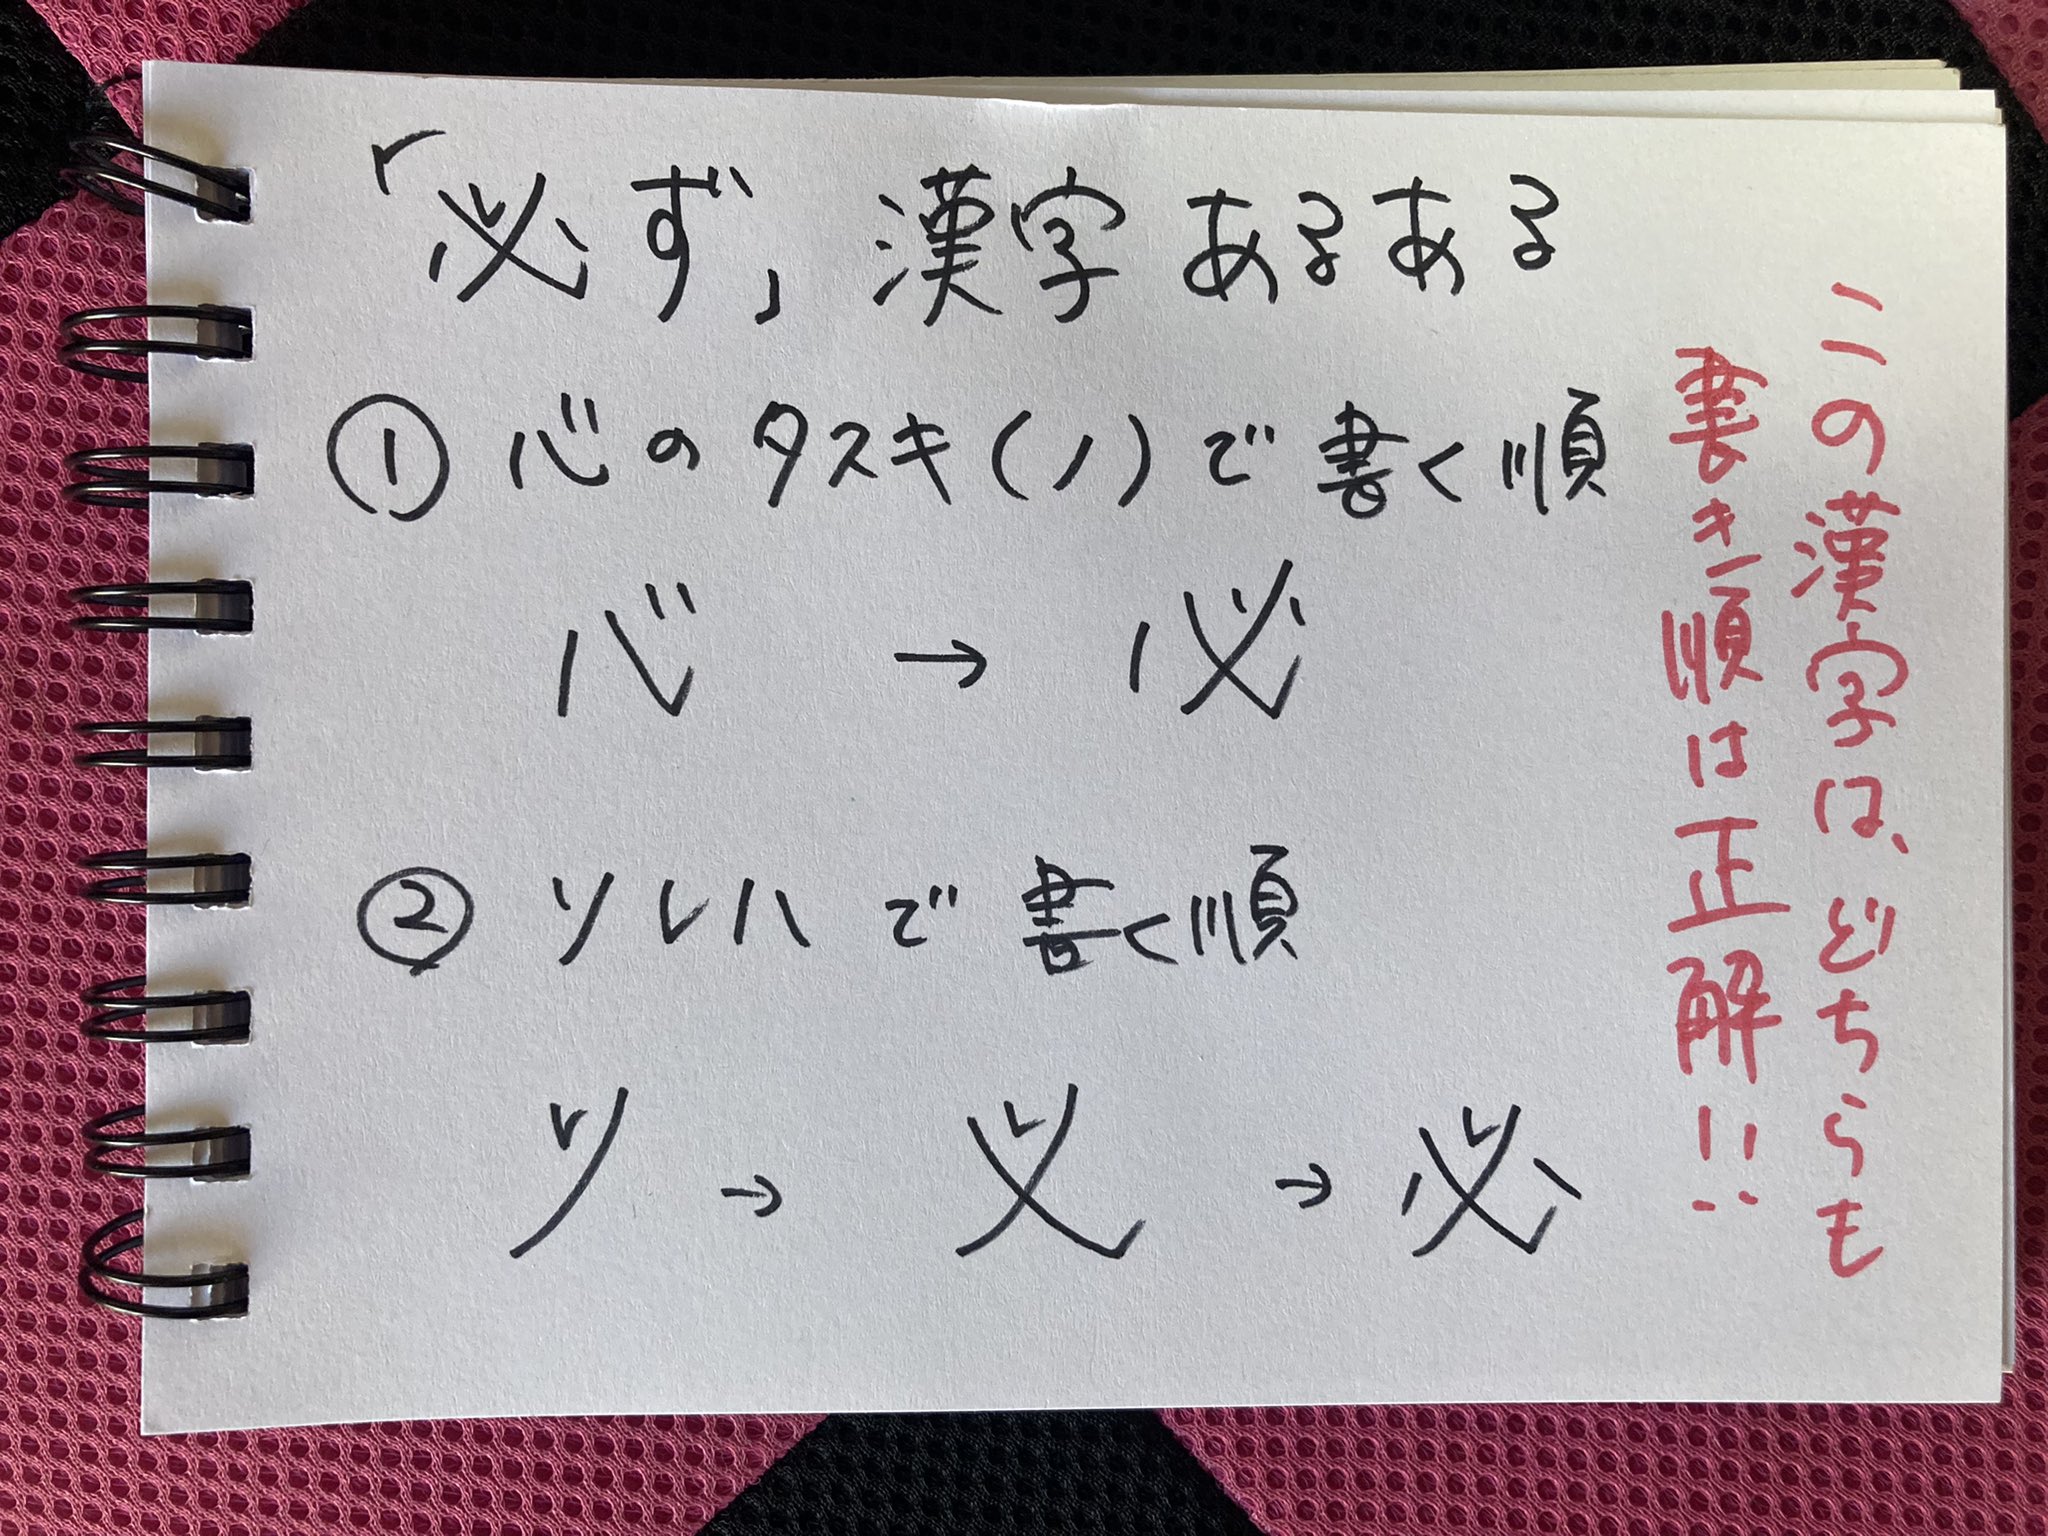 「必ず」漢字あるある
① 心のタスキ(ノ)で書く順
心 → 必
② ソレハで書く順
ソ → 义 → 必
この漢字は、どちらも
書き順は正解!!